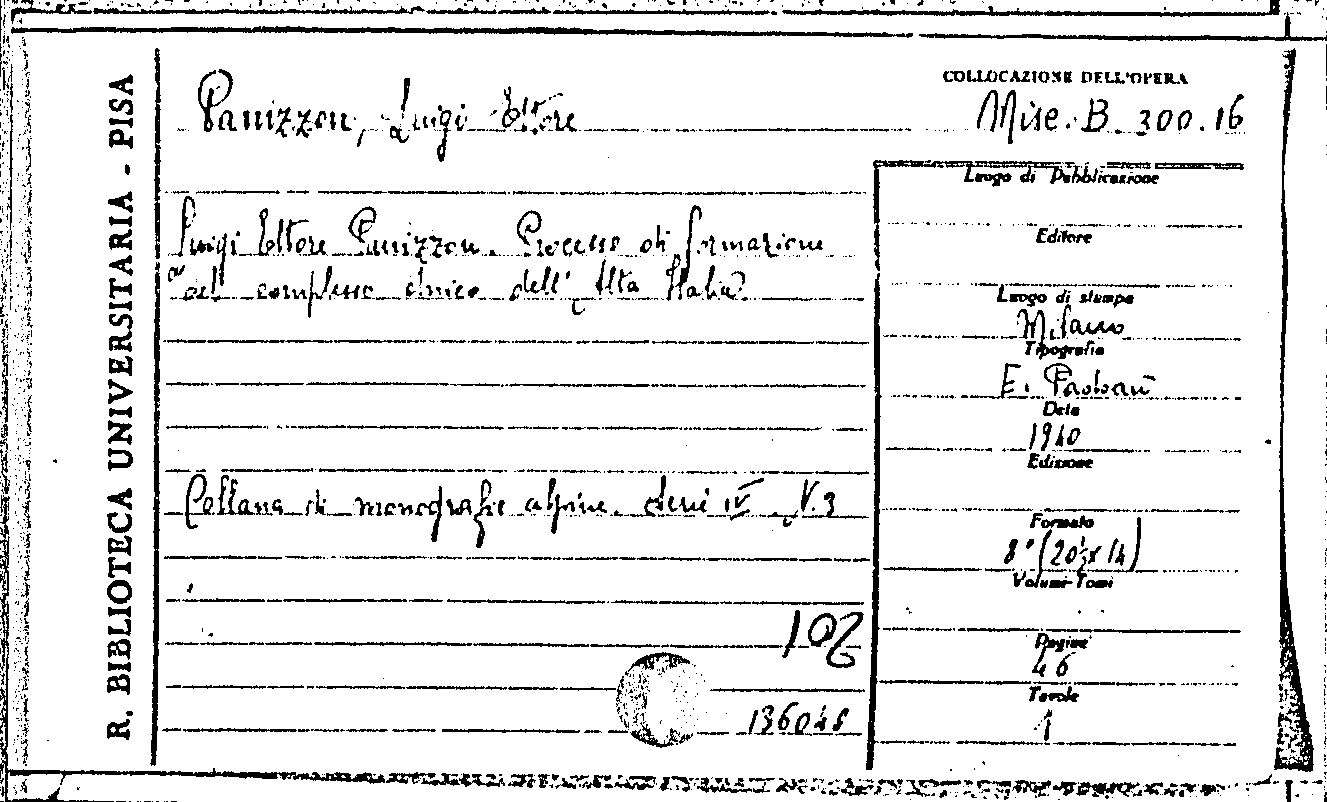 R. BIBLIOTECA UNIVERSITARIA - PISA
Panizzon, Luigi Ettore
COLLOCAZIONE DELL'OPERA
Misc. B. 300.16
Luigi Ettore Panizzon. Processo di formazione
del complesso etnico dell'Alta Italia.
Collana di monografie alpine. Serie IV. N. 3
108
136048
Luogo di Pubblicazione
Editore
Luogo di stampa
Milano
Tipografia
E.
Data
1940
Edizione
Formato
8° (20½ x 14)
Volumi-Tomi
Pagine
46
Tavole
1